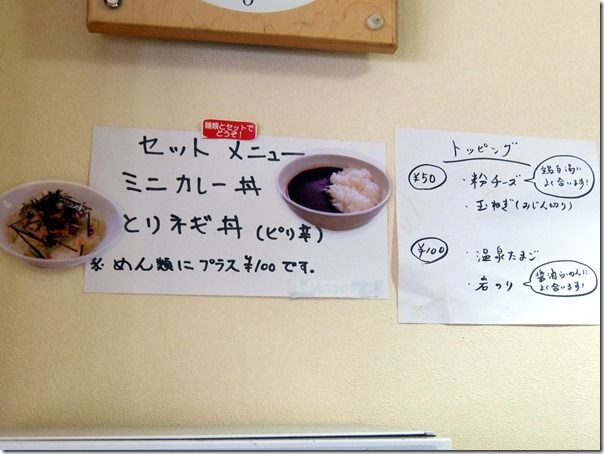 麺類とセットで
どうぞ!
セット メニュー
ミニ カレー丼
とり ネギ丼 (ピリ辛)
※ めん類に プラス ¥100 です.
トッピング
¥50
・粉チーズ
鶏白湯に
よく合います!
・玉ねぎ(みじん切り)
¥100
・温泉たまご
・岩のり
醤油らーめんに
よく合います!